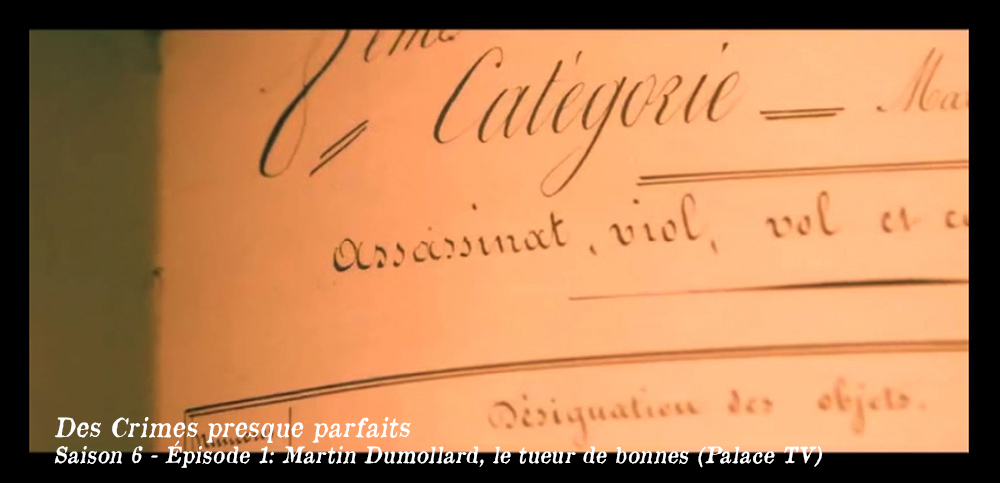 Catégorie = Ma
assassinat, viol, vol et
Désignation des objets.
Des Crimes presque parfaits
Saison 6 - Épisode 1: Martin Dumollard, le tueur de bonnes (Palace TV)